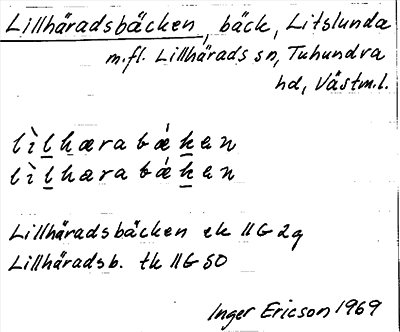 Lillhäradsbäcken, bäck, Litslunda
m.fl. Lillhärads sn, Tuhundra
hd, Västm.l.
lìlhærabǽkən
lìlharabǽkən
Lillhäradsbäcken ek 11G 2g
Lillhäradsb. tk 11G SO
Inger Ericson 1969